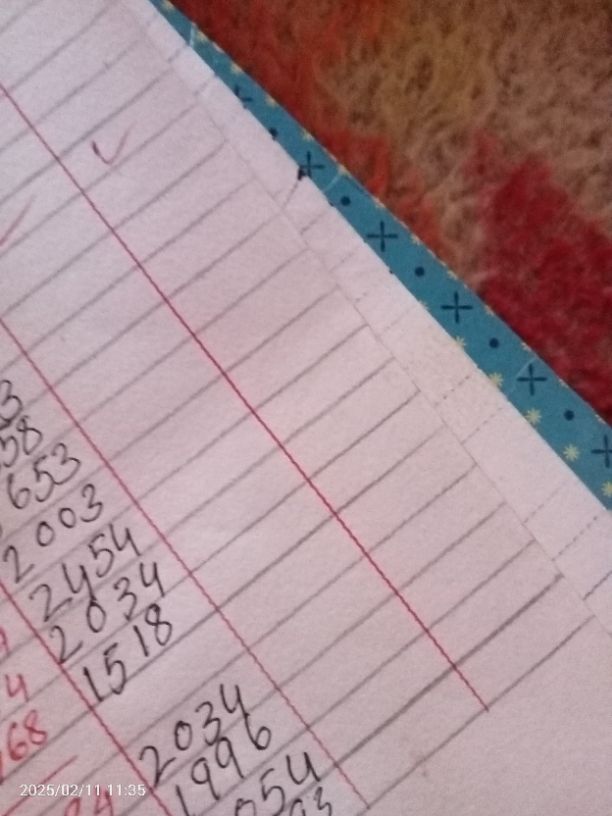 3
58
653
2003
2454
2034
4 1518
68
2034
1996
054
93
2025/02/11 11:35